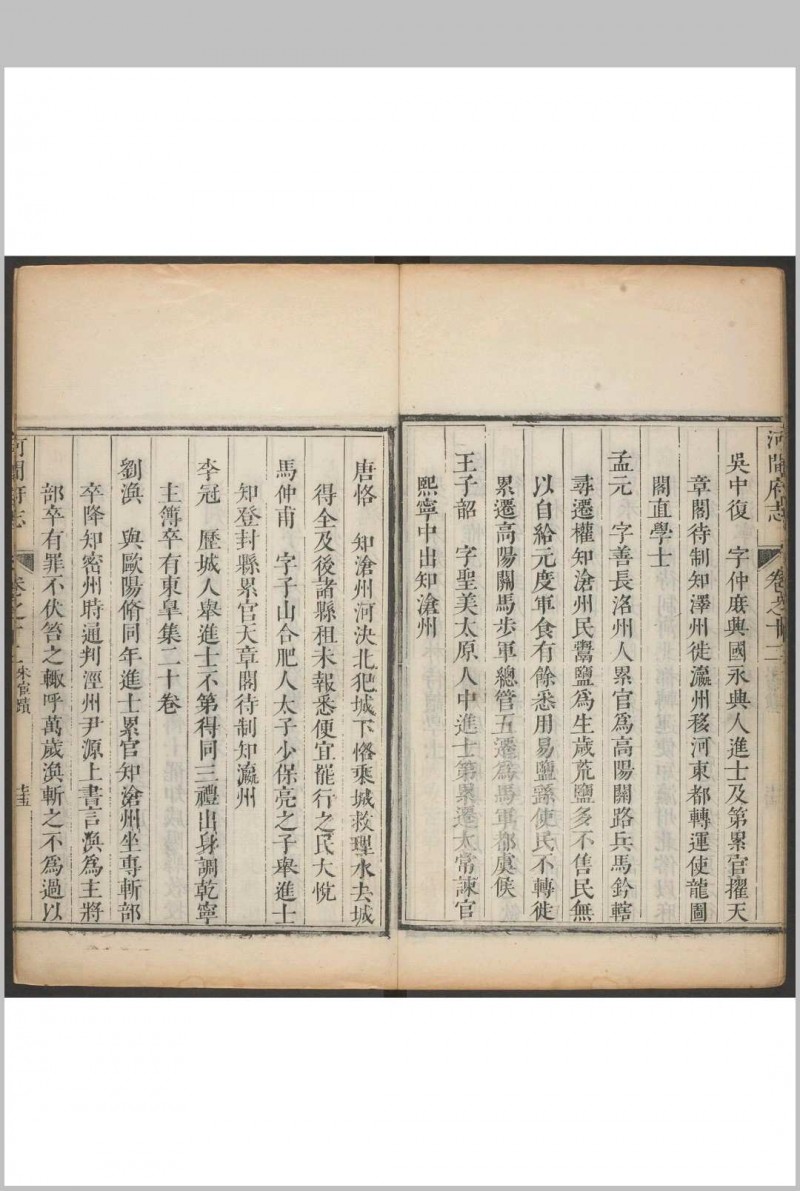 河間府志 卷之十二
吳中復 字仲庶興國永興人進士及第累官擢天
章閣待制知澤州徙瀛州移河東都轉運使龍圖
閣直學士
孟元 字善長洺州人累官為高陽關路兵馬鈐轄
尋遷權知滄州民鬻鹽為生歲荒鹽多不售民無
以自給元度軍食有餘悉用易鹽繇使民不轉徙
累遷高陽關馬步軍總管五遷為馬軍都虞侯
王子韶 字聖美太原人中進士第累遷太常諫官
熙寧中出知滄州
唐恪 知滄州河決北犯城下恪乘城救理水去城
得全及後諸縣租未報悉便宜罷行之民大悅
馬仲甫 字子山合肥人太子少保亮之子舉進士
知登封縣累官天章閣待制知瀛州
李冠 歷城人舉進士不第得同三禮出身調乾寧
主簿卒有東皐集二十卷
劉渙 與歐陽脩同年進士累官知滄州坐專斬部
卒降知密州時通判涇州尹源上書言渙為主將
部卒有罪不伏笞之輒呼萬歲渙斬之不為過以
河間府志 卷之十二 宦蹟